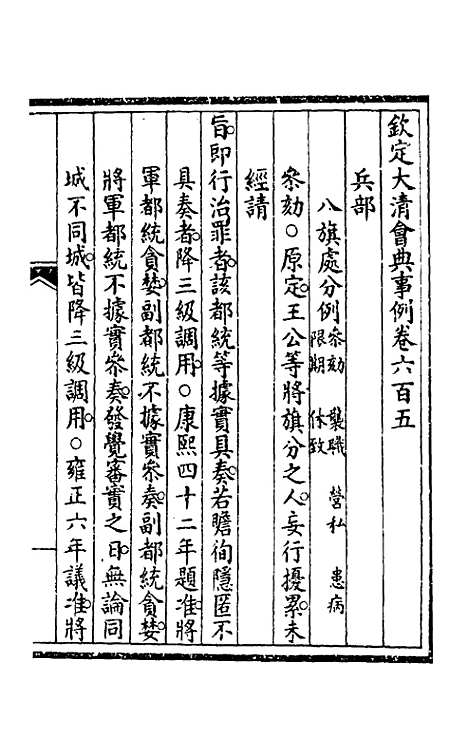 欽定大清會典事例卷六百五
兵部
八旗處分例 參劾 襲職 營私 患病
限期 休致
參劾○原定王公等將旗分之人妄行擾累未
經請
旨即行治罪者該都統等據實具奏若瞻徇隱匿不
具奏者降三級調用○康熙四十二年題准將
軍都統貪婪副都統不據實參奏副都統貪婪
將軍都統不據實參奏發覺審實之日無論同
城不同城皆降三級調用○雍正六年議准將